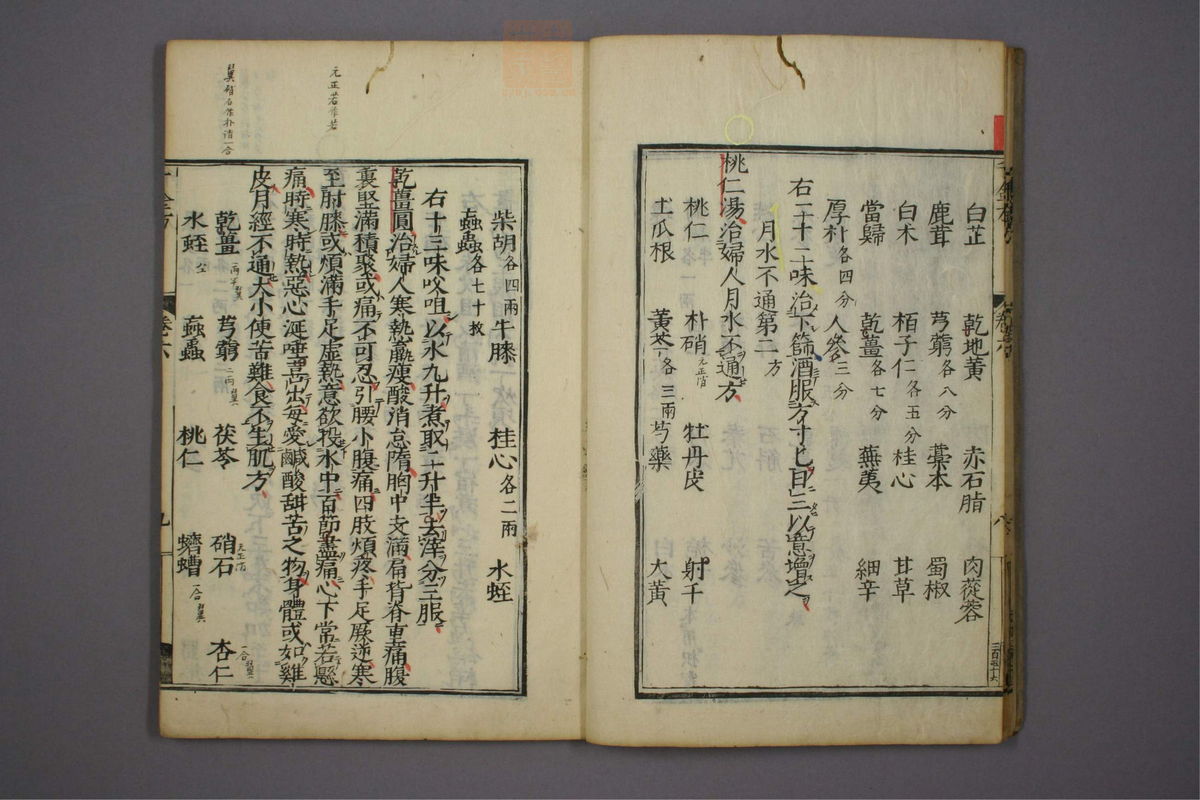 白芷 乾地黄 赤石脂 肉蓯蓉
鹿茸 芎藭各八分 藁本 蜀椒
白木 栢子仁各五分 桂心 甘草
當歸 乾薑各七分 蕪荑 細辛
厚朴各四分 人參三分
右二十二味治下篩酒服方寸匕日三以意增之
月水不通第二方
桃仁湯治婦人月水不通方
桃仁 朴硝 牡丹皮 射干
土瓜根 黃芩各三兩 芍藥 大黃
柴胡各四兩 牛膝 桂心各二兩 水蛭
蝱蟲各七十枚
右十三味㕮咀以水九升煮取二升半去滓分三服
乾薑圓治婦人寒熱羸瘦酸消怠惰胸中支滿肩背脊重痛腹
裏堅滿積聚或痛不可忍引腰小腹痛四肢煩疼手足厥逆寒
至肘膝或煩滿手足虛熱意欲投水中百節盡痛心下常若懸
痛時寒時熱惡心涎唾喜出每愛鹹酸甜苦之物身體或如雞
皮月經不通大小便苦難食不生肌方
乾薑 芎藭 茯苓 硝石 杏仁
水蛭 蝱蟲 桃仁 蠐螬
卷六
九
元正若作若